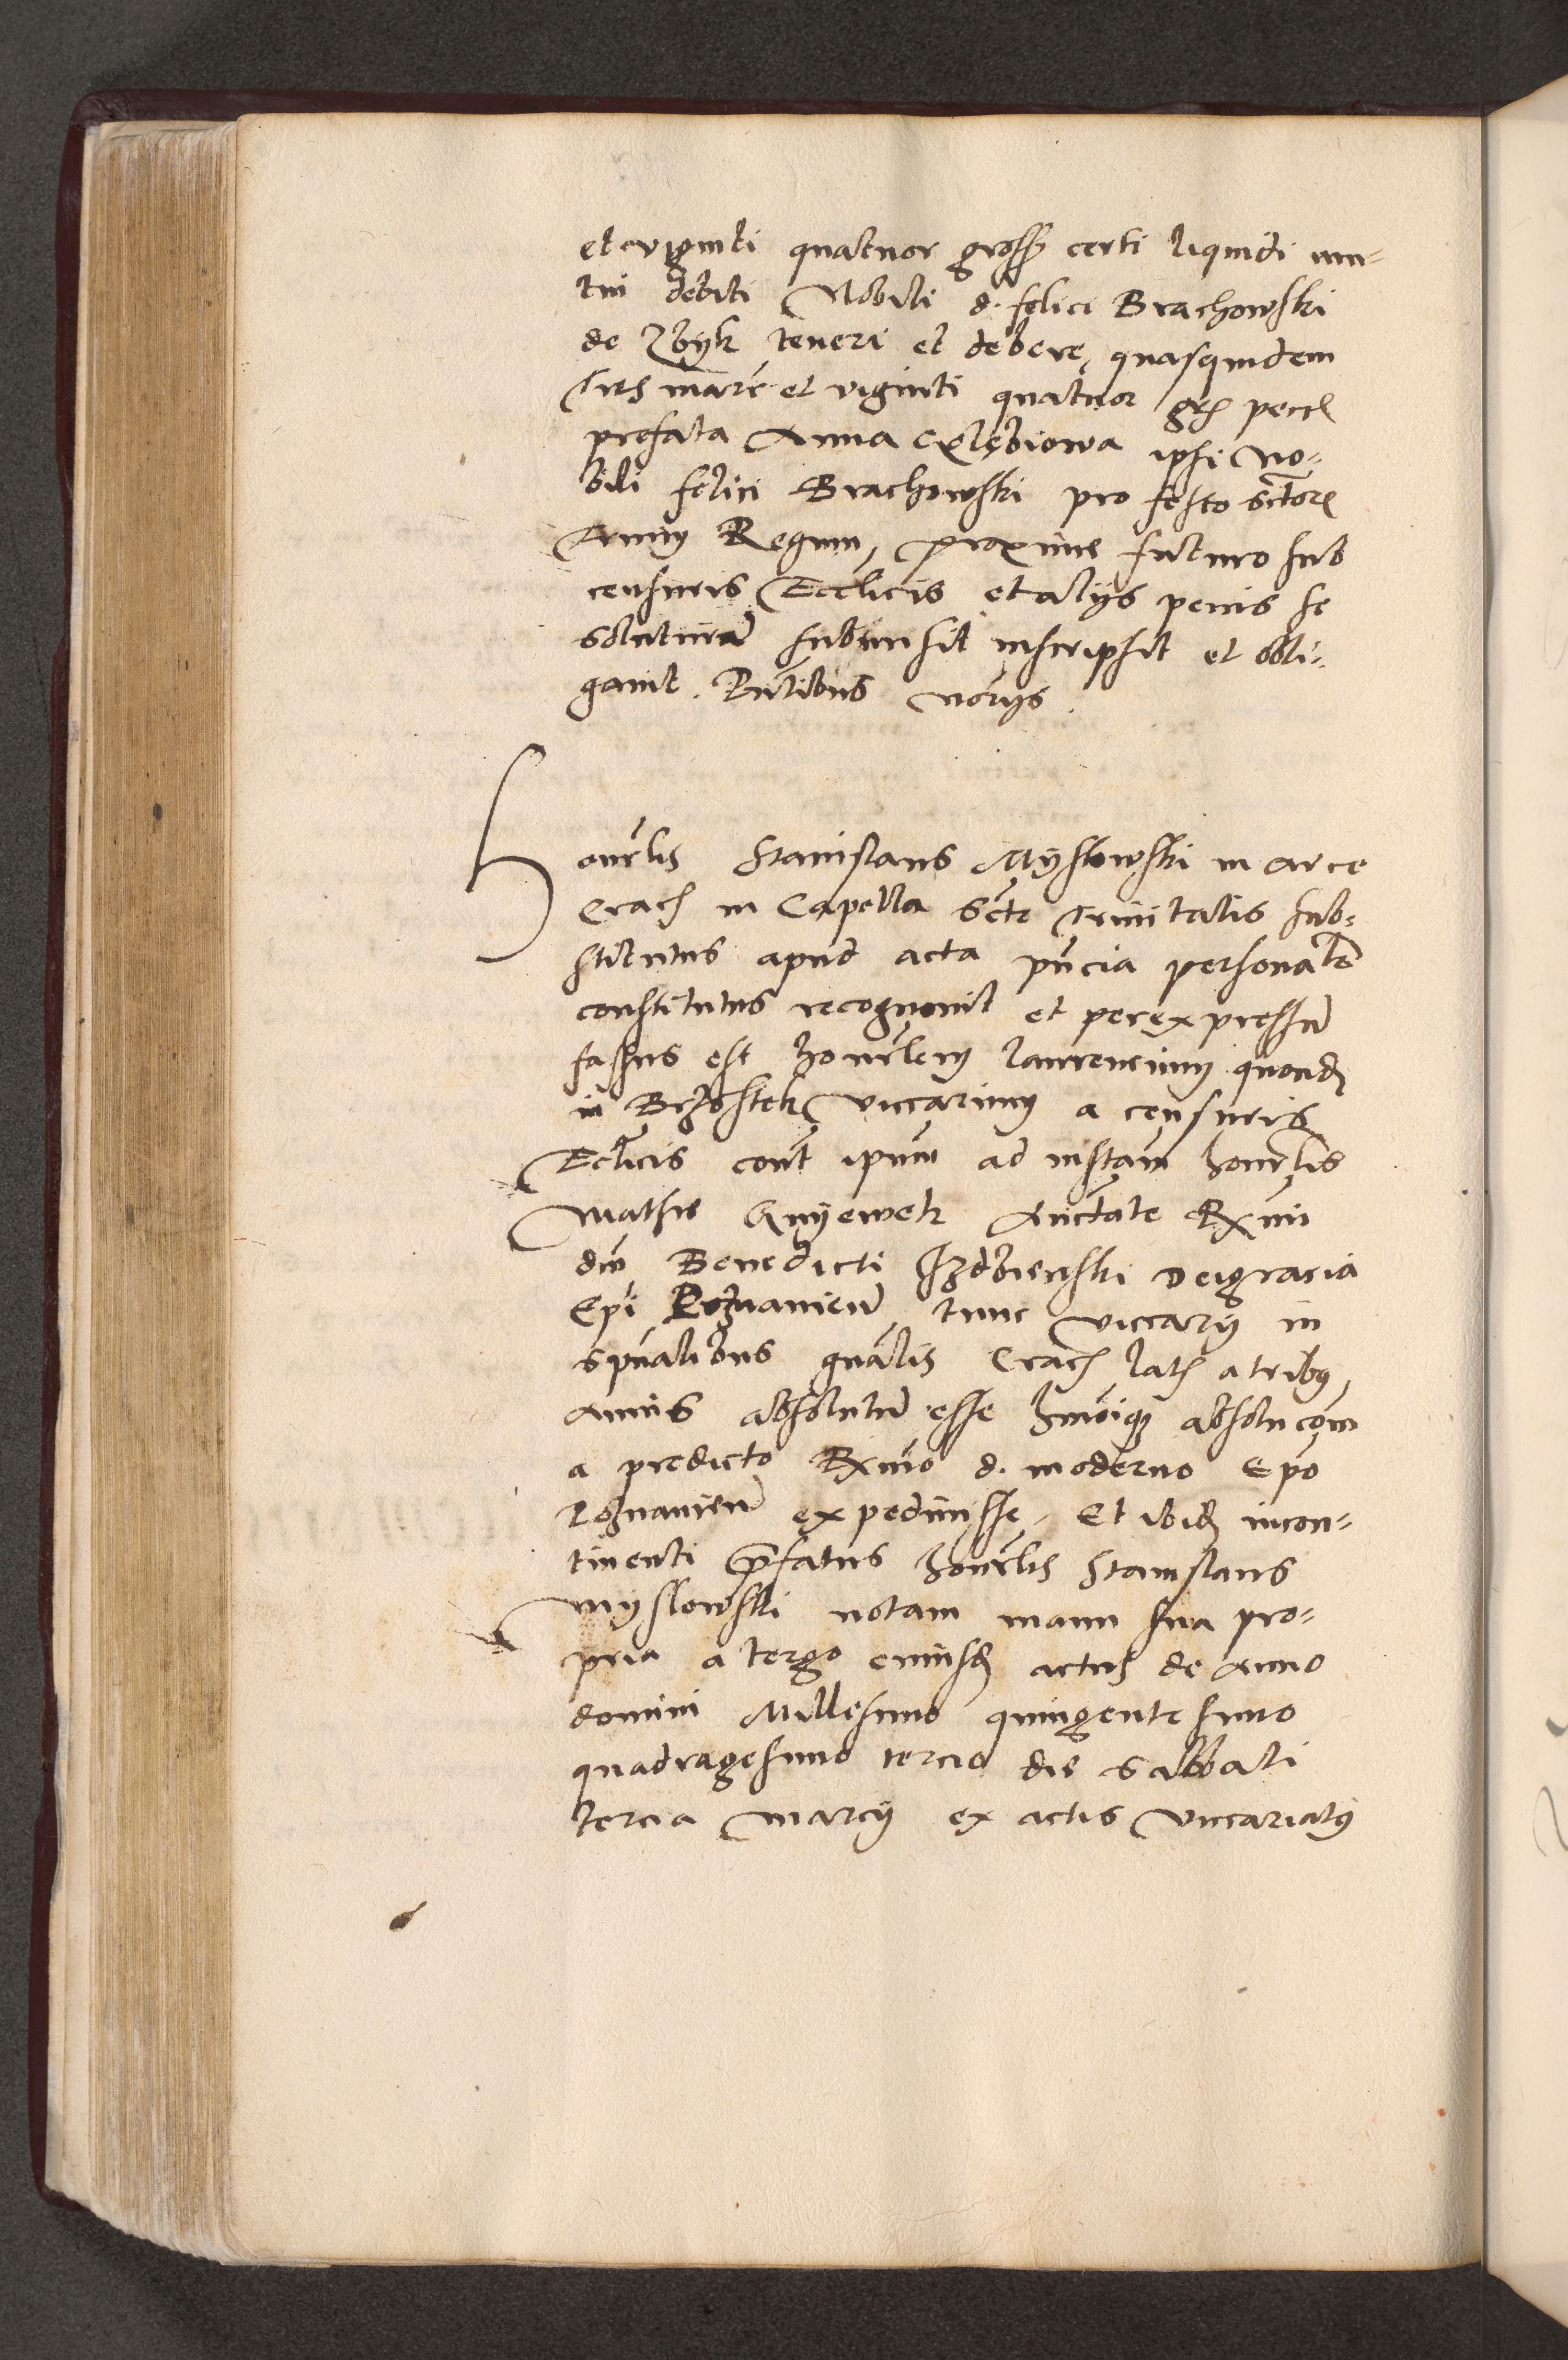 et viginti quatuor gross certi liquidi mu-
tui debiti Nobili d. felici Brachowski
de Zbyk teneri et debere, quasquidem
Tres marc et viginti quatuor grs pecc
prefata Anna ipsi No-
bili felici Brachowski pro festo sctor
trium Regum, proxime futuro sub
censuris Ecclicis et alijs penis se
soluturam submisit inscripsit et obli-
gavit. Pntibus norijs.
Honrlis Stanislaus Myslowski in arce
Crac in Capella Scte Trinitatis sub-
stitutus apud acta pncia personalr
constitutus recognovit et per expressum
fassus est honrlem laurencium quond
in Brzostek viccarium a censuris
Ecclicis cont ipum ad instam honrlis
Mathie Knyewek Auctate Rxmi
dni Benedicti Izdbienski Dei gracia
Epi Poznanien tunc viccarij in
spualibus gnalis Crac lats a tribus
Annis absolutum esse absolucom
a predicto Rxmo d. moderno Epo
Poznanien expedivisse. Et ibid incon-
tinenti prefatus honrlis Stanislaus
Myslowski notam manu sua pro-
pria a tergo eiusd actus de Anno
domini Millesimo quingentesimo
quadragesimo tercio die Sabbati
tercia Marcij ex actis viccariatus